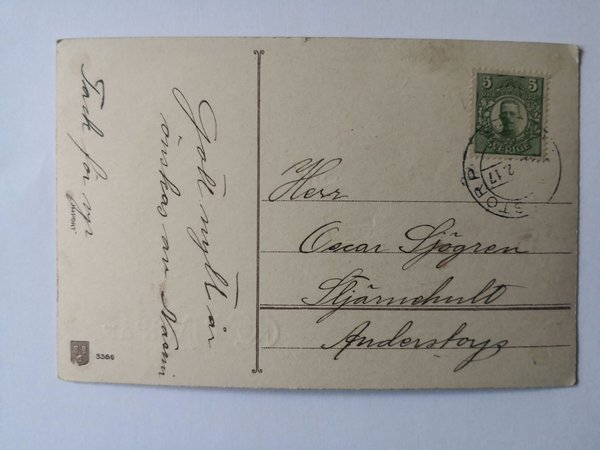 Tack för syn
IMPORT
Gott nytt år
önskas av Naemi
5 5
SVERIGE
STORP
2.17
Herr
Oscar Sjögren
Stjärnehult
Anderstorp
3386